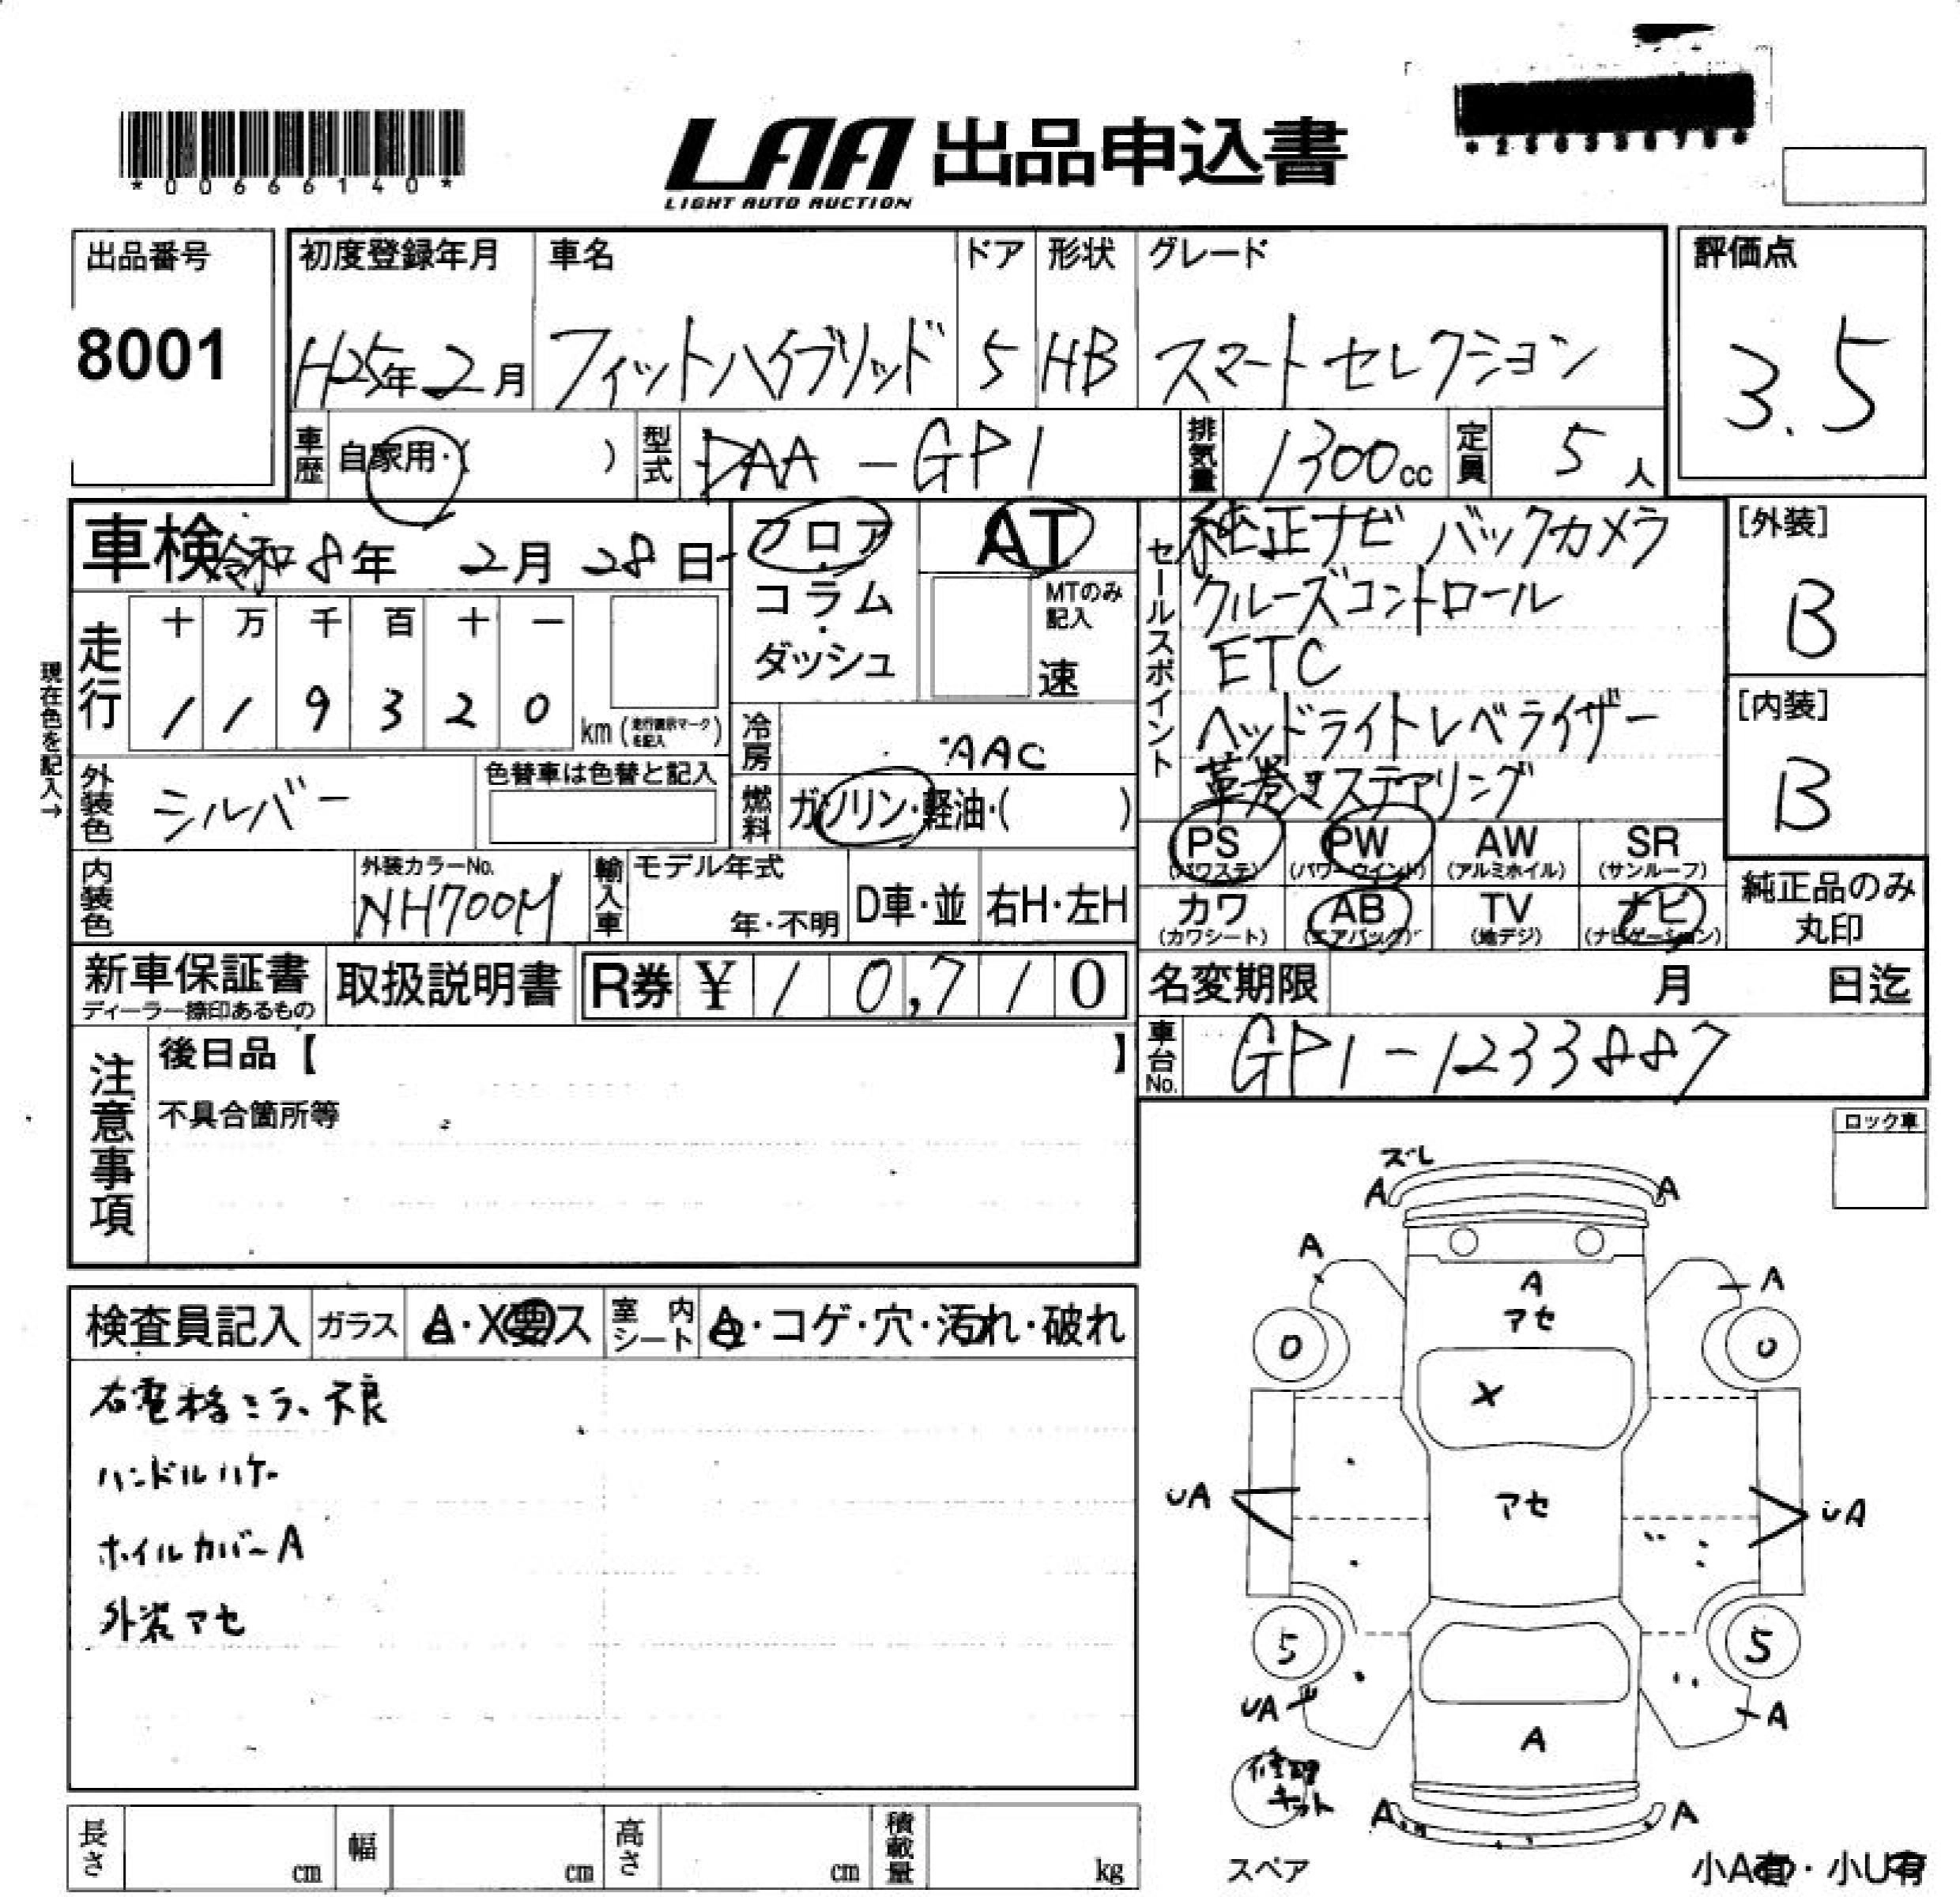 *00666140*
LAA 出品申込書
LIGHT AUTO AUCTION
出品番号
8001
初度登録年月
H25年2月
車名
フィットハイブリッド
ドア
5
形状
HB
グレード
スマートセレクション
評価点
3.5
車歴
自家用・( )
型式
DAA-GP1
排気量
1300cc
定員
5人
車検 令和8年 2月 28日
フロア・コラム・ダッシュ
AT
MTのみ記入
速
走行
十 万 千 百 十 一
1 1 9 3 2 0
km (走行表示マークを記入)
現在色を記入→
冷房
AAC
外装色
シルバー
色替車は色替と記入
燃料
ガソリン・軽油・( )
セールスポイント
純正ナビ バックカメラ
クルーズコントロール
ETC
ヘッドライトレベライザー
革巻きステアリング
[外装]
B
[内装]
B
PS (パワステ)
PW (パワーウインド)
AW (アルミホイル)
SR (サンルーフ)
カワ (カワシート)
AB (エアバッグ)
TV (地デジ)
ナビ (ナビゲーション)
純正品のみ
丸印
内装色
外装カラーNo.
NH700M
輸入車
モデル年式
年・不明
D車・並
右H・左H
新車保証書
ディーラー捺印あるもの
取扱説明書
R券 ¥ 10,710
名変期限 月 日迄
車台No.
GP1-1233887
注意事項
後日品【 】
不具合箇所等
ロック車
検査員記入
ガラス
A・X要ス
室内シート
A・コゲ・穴・汚れ・破れ
右電格ミラー不良
ハンドルハゲ
ホイルカバーA
外装アセ
ズレ
A A
A A
A
アセ
0 0
X
UA アセ UA
5 5
UA A
A
修理
キット
A A
スペア
小A有・小U有
長さ cm
幅 cm
高さ cm
積載量 kg